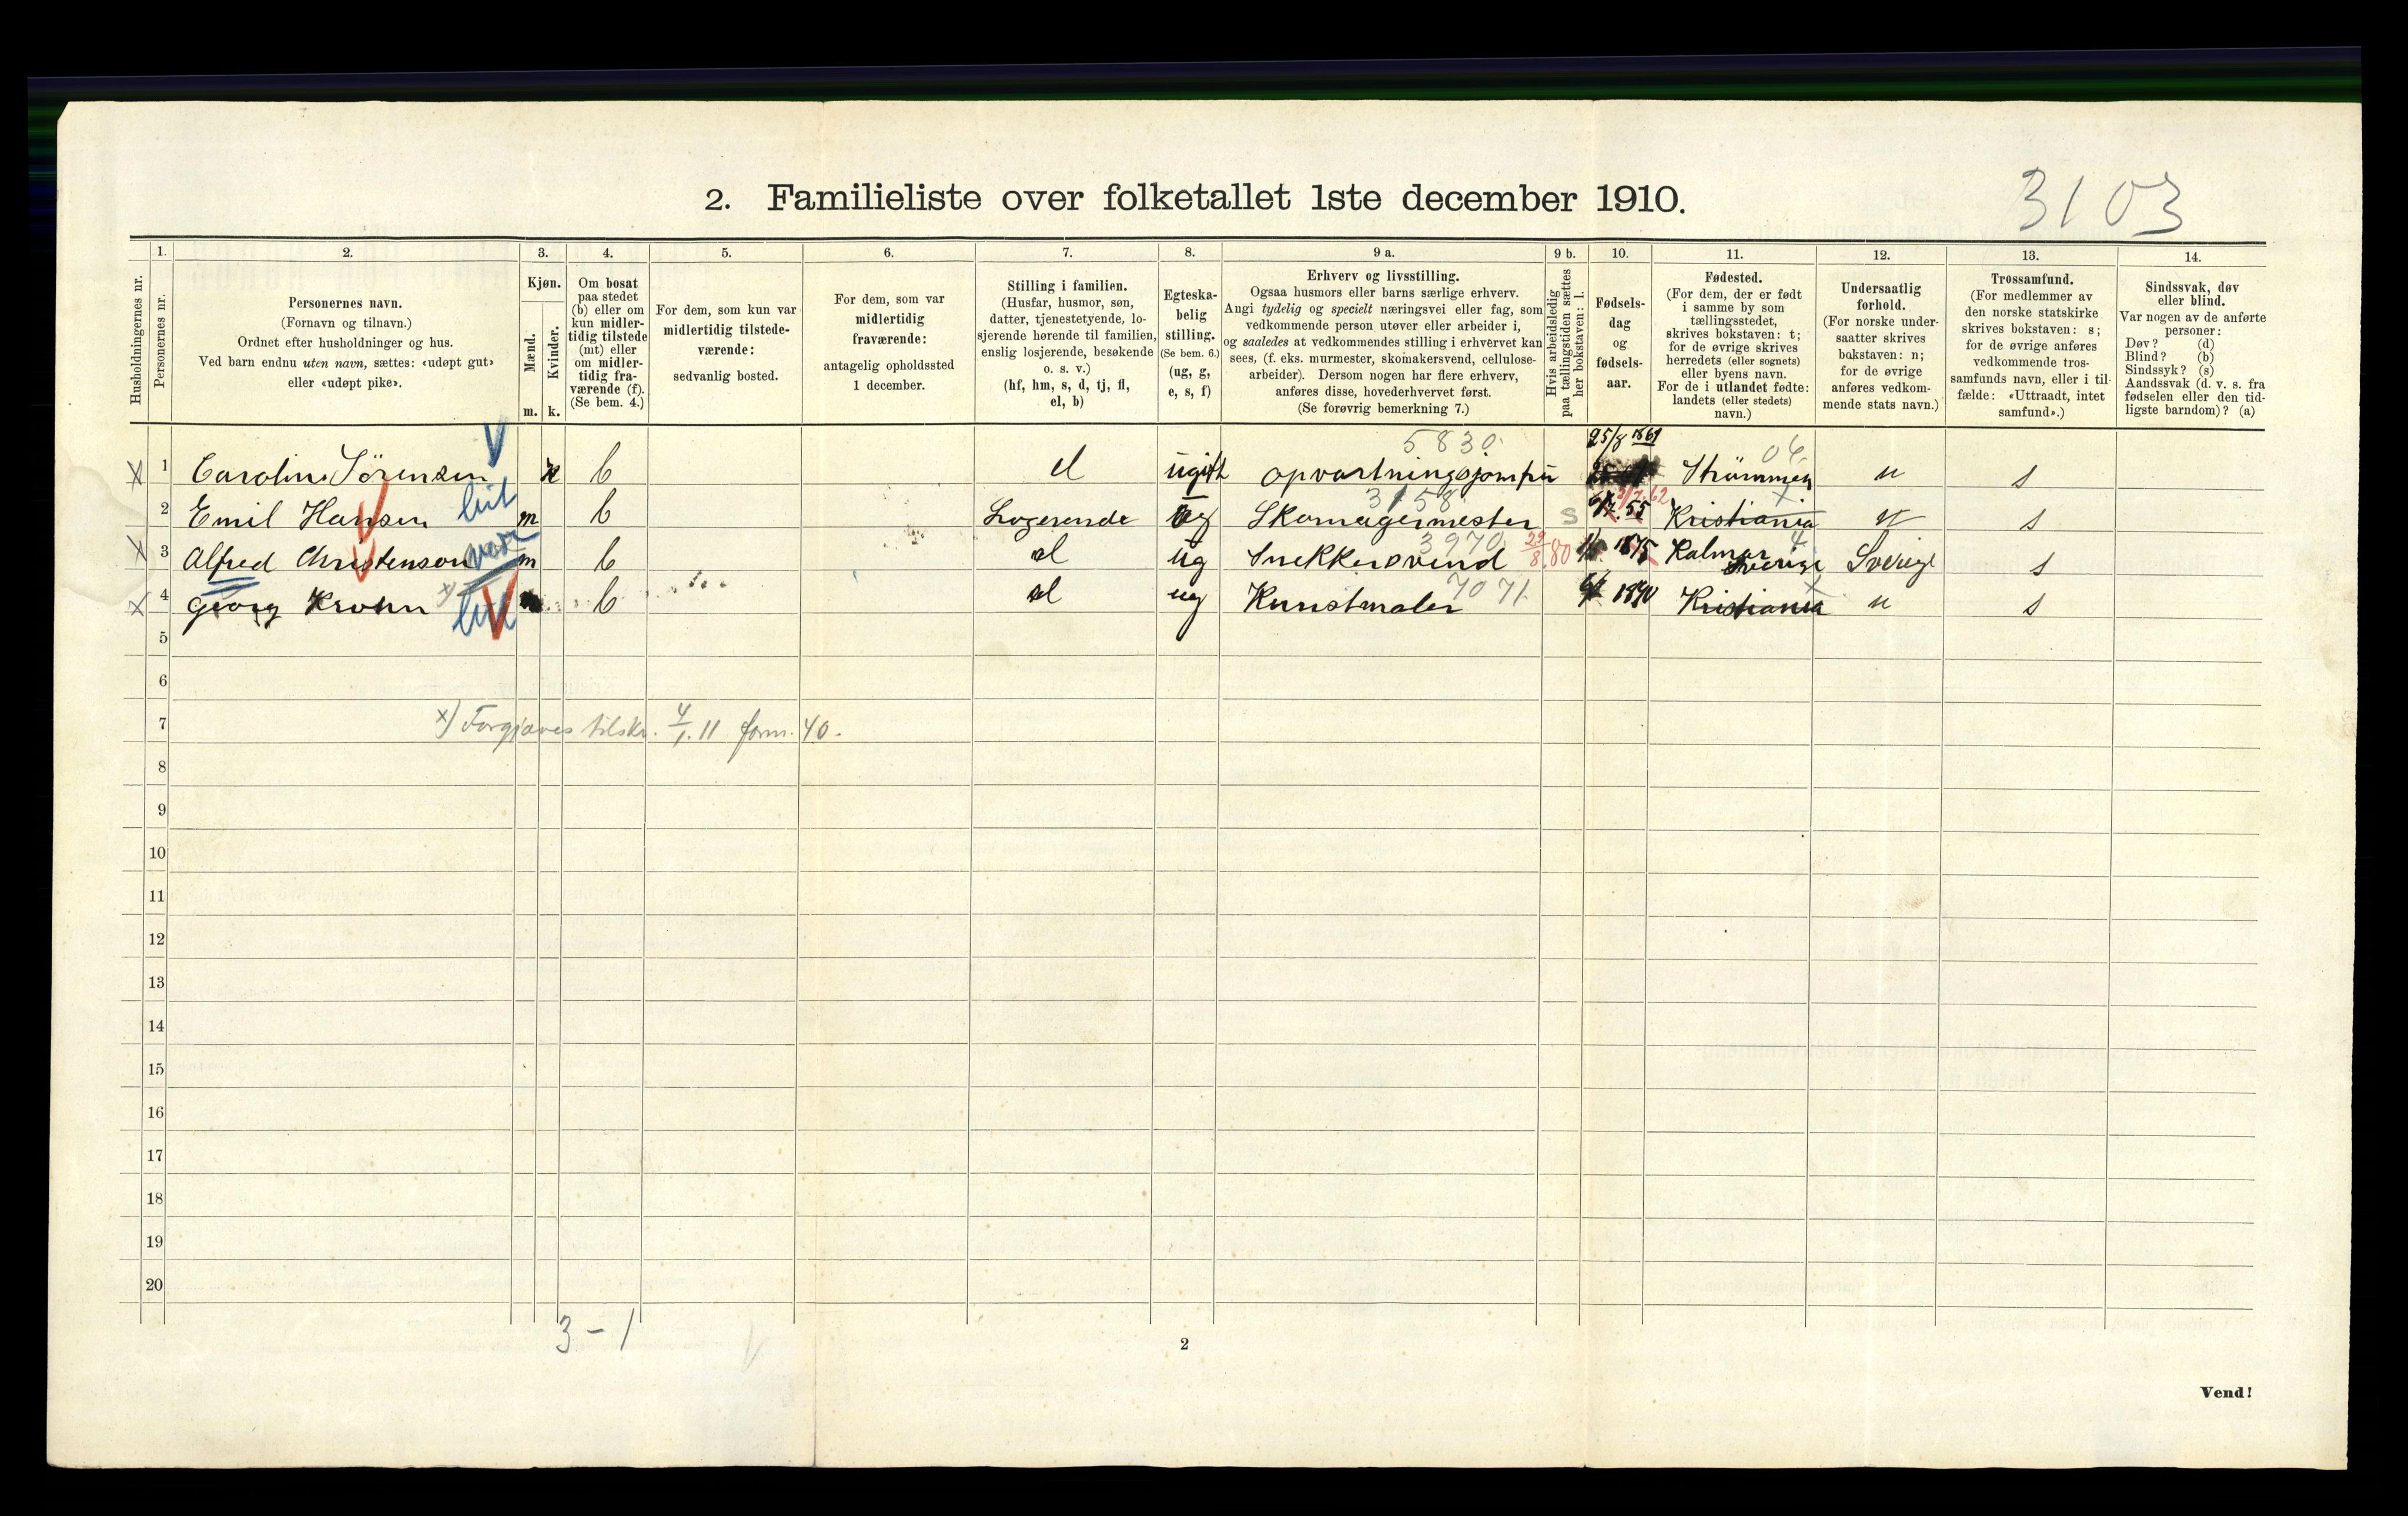 2. Familieliste over folketallet 1ste december 1910.
3103
Husholdningernes nr.
1. Personernes nr.
2. Personernes navn.
(Fornavn og tilnavn.)
Ordnet efter husholdninger og hus.
Ved barn endnu uten navn, sættes: «udøpt gut»
eller «udøpt pike».
3. Kjøn.
Mænd. m.
Kvinder. k.
4. Om bosat
paa stedet
(b) eller om
kun midler-
tidig tilstede
(mt) eller
om midler-
tidig fra-
værende (f).
(Se bem. 4.)
5. For dem, som kun var
midlertidig tilstede-
værende:
sedvanlig bosted.
6. For dem, som var
midlertidig
fraværende:
antagelig opholdssted
1 december.
7. Stilling i familien.
(Husfar, husmor, søn,
datter, tjenestetyende, lo-
sjerende hørende til familien,
enslig losjerende, besøkende
o. s. v.)
(hf, hm, s, d, tj, fl,
el, b)
8. Egteska-
belig
stilling.
(Se bem. 6.)
(ug, g,
e, s, f)
9 a. Erhverv og livsstilling.
Ogsaa husmors eller barns særlige erhverv.
Angi tydelig og specielt næringsvei eller fag, som
vedkommende person utøver eller arbeider i,
og saaledes at vedkommendes stilling i erhvervet kan
sees, (f. eks. murmester, skomakersvend, cellulose-
arbeider). Dersom nogen har flere erhverv,
anføres disse, hovederhvervet først.
(Se forøvrig bemerkning 7.)
9 b. Hvis arbeidsledig
paa tællingstiden sættes
her bokstaven: l.
10. Fødsels-
dag
og
fødsels-
aar.
11. Fødested.
(For dem, der er født
i samme by som
tællingsstedet,
skrives bokstaven: t;
for de øvrige skrives
herredets (eller sognets)
eller byens navn.
For de i utlandet fødte:
landets (eller stedets)
navn.)
12. Undersaatlig
forhold.
(For norske under-
saatter skrives
bokstaven: n;
for de øvrige
anføres vedkom-
mende stats navn.)
13. Trossamfund.
(For medlemmer av
den norske statskirke
skrives bokstaven: s;
for de øvrige anføres
vedkommende tros-
samfunds navn, eller i til-
fælde: «Uttraadt, intet
samfund».)
14. Sindssvak, døv
eller blind.
Var nogen av de anførte
personer:
Døv? (d)
Blind? (b)
Sindssyk? (s)
Aandssvak (d. v. s. fra
fødselen eller den tid-
ligste barndom)? (a)
5830. 25/8 1861 06
X 1 Carolin Sörensen k b el ugift opvartningsjomfru Strømmen n s
3158 62
2 Emil Hansen m b Logerende ug Skomagermester s 55 Kristiania n s
3970 29/8.80 4
X 3 Alfred Christenson m b el ug Snekkersvend 1875 Kalmar Sverige Sverige s
7071
X 4 Georg Krohn x) b el ug Kunstmaler 1890 Kristiania n s
5
6
7 x) Forgjæves tilskr. 4/1. 11 form. 40.
8
9
10
11
12
13
14
15
16
17
18
19
20
3 - 1
2
Vend!